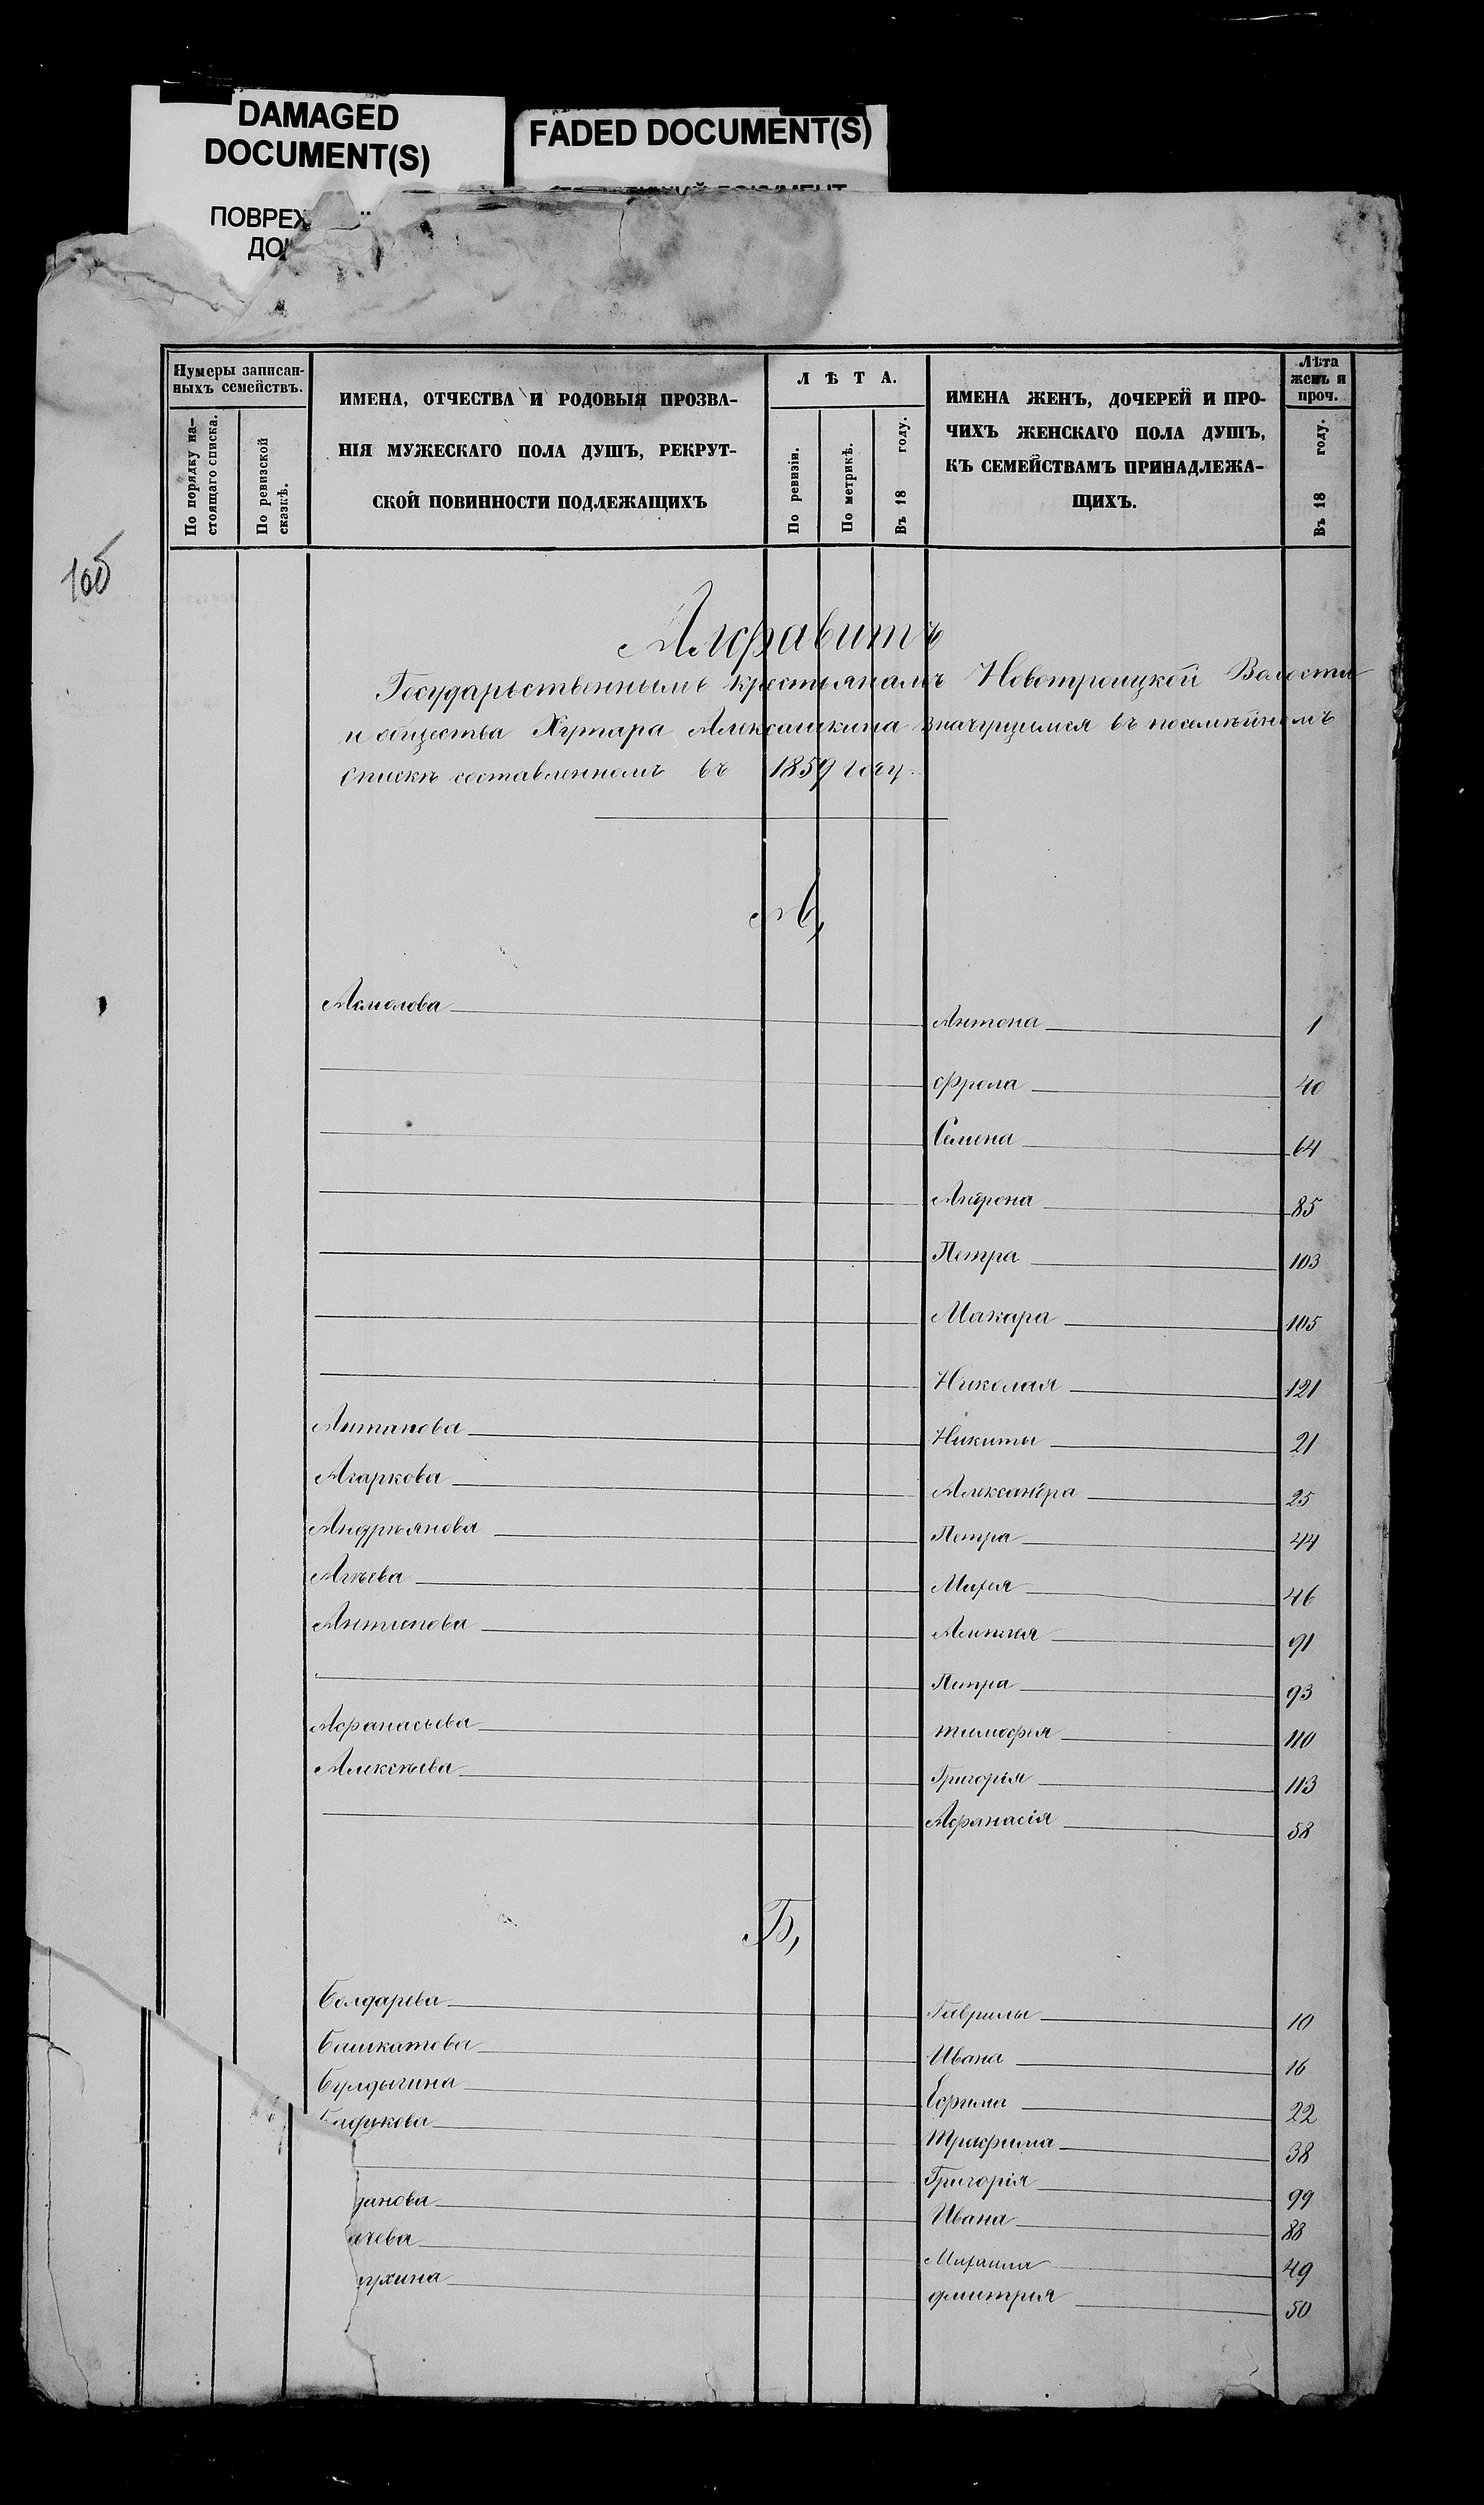 DAMAGED
DOCUMENT(S)
FADED DOCUMENT(S)
Нумеры записан-
ныхъ семействъ.
По порядку на-
стоящаго списка.
По ревизской
сказкѣ.
ИМЕНА, ОТЧЕСТВА И РОДОВЫЯ ПРОЗВА-
НІЯ МУЖЕСКАГО ПОЛА ДУШЪ, РЕКРУТ-
СКОЙ ПОВИННОСТИ ПОДЛЕЖАЩИХЪ
ЛѢТА.
По ревизіи.
По метрикѣ.
Въ 18 году.
ИМЕНА ЖЕНЪ, ДОЧЕРЕЙ И ПРО-
ЧИХЪ ЖЕНСКАГО ПОЛА ДУШЪ,
КЪ СЕМЕЙСТВАМЪ ПРИНАДЛЕЖА-
ЩИХЪ.
Лѣта
женъ и
проч.
Въ 18 году.
Алфавитъ
Государственнымъ крестьянамъ Новотроицкой Волости
и общества Хутара Алексашкина значущимся въ посемѣйномъ
списке составленномъ въ 1859 году.
А,
Антона 1
Фрола 40
Семена 64
Андрона 85
Петра 103
Макара 105
Николая 121
Никиты 21
Агаркова Александра 25
Андрьянова Петра 44
Агѣева Михея 46
Антипова 91
Петра 93
Афанасьева тимофея 110
Алексѣева Григорія 113
Афанасія 58
Б,
Болдарева Гаврилы 10
Башкатова Ивана 16
Булдыгина Ефрема 22
Трафима 38
Григорія 99
данова Ивана 88
ачева Михаила 49
ухина дмитрия 50